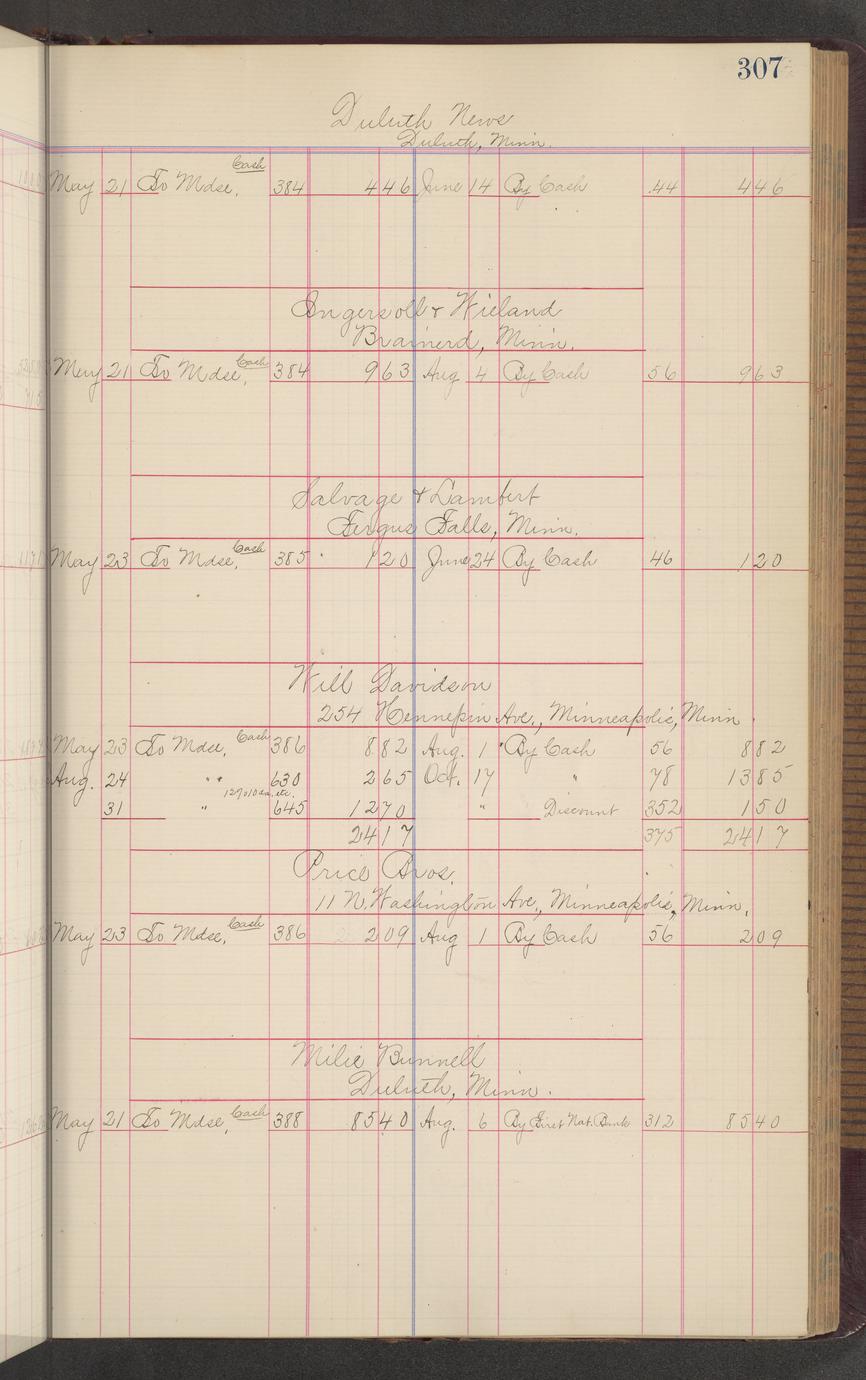 307
Duluth News
Duluth, Minn.
May 21 To Mdse, Cash 384 446 June 14 By Cash 44 446
Ingersoll & Wieland
Brainerd, Minn.
May 21 To Mdse, Cash 384 963 Aug 4 By Cash 56 963
Salvage & Lambert
Fergus Falls, Minn.
May 23 To Mdse, Cash 385 120 June 24 By Cash 46 120
Will Davidson
254 Hennepin Ave., Minneapolis, Minn.
May 23 To Mdse, Cash 386 882 Aug. 1 By Cash 56 882
Aug. 24 " " 630 265 Oct. 17 " 78 1385
31 " 645 1270 " Discount 352 150
2417 375 2417
Price Bros.
11 N. Washington Ave., Minneapolis, Minn.
May 23 To Mdse, Cash 386 209 Aug 1 By Cash 56 209
Milie Bunnell
Duluth, Minn.
May 21 To Mdse, Cash 388 8540 Aug. 6 By First Nat. Bank 312 8540